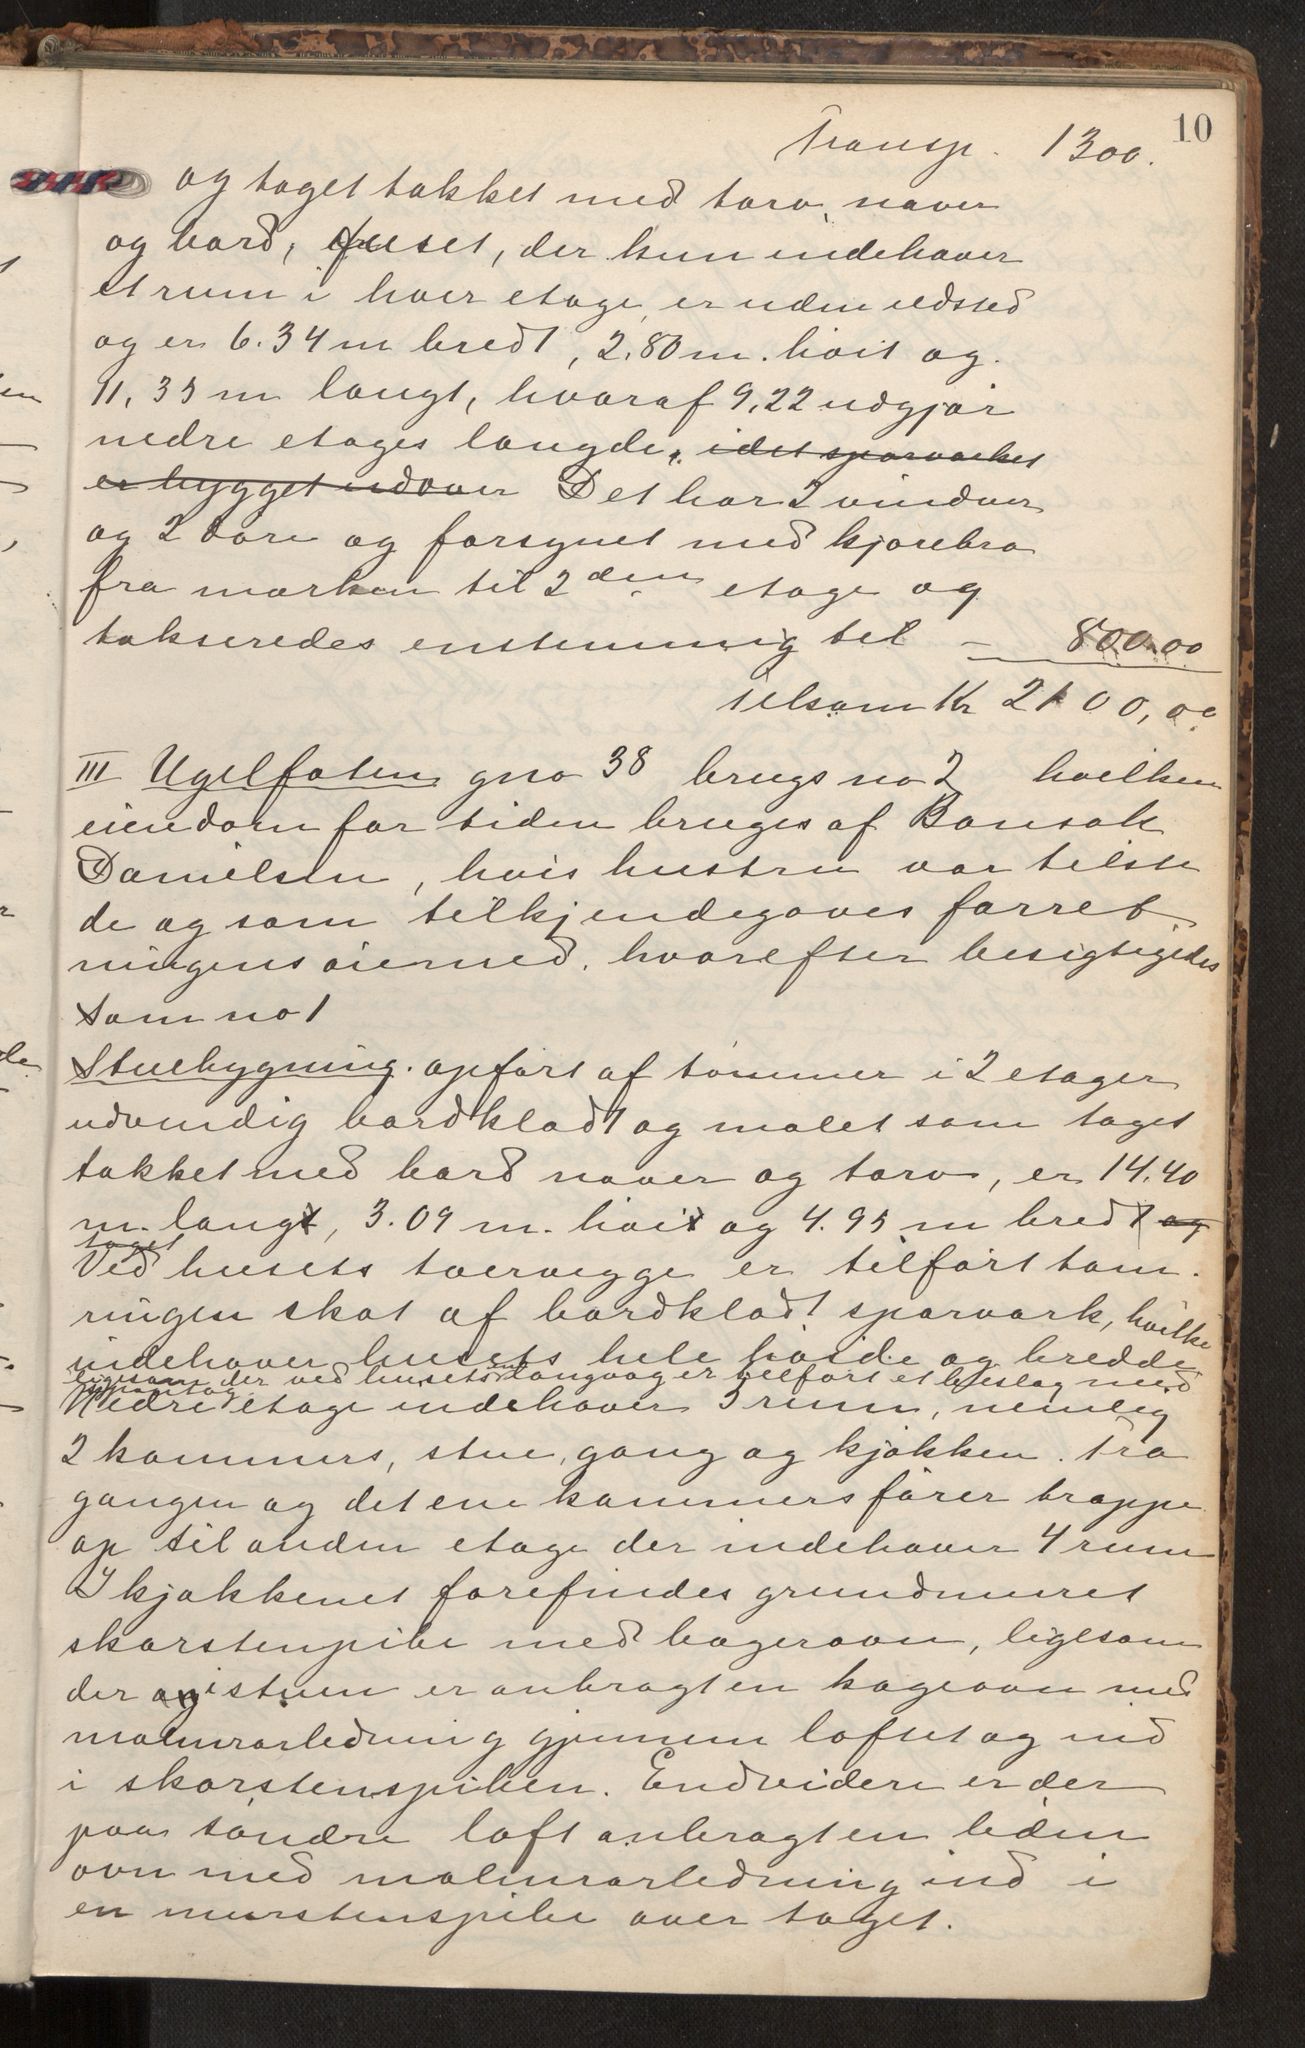 10
Transp. 1300.
og taget tækket med torv, næver
og bord, huset, der kun indehaver
et rum i hver etage, er uden ildsted
og er 6.34 m bredt, 2.80 m. høit og
11,35 m langt, hvoraf 9,22 udgjør
nedre etages længde, idet sparværket
er bygget udover Det har 2 vinduer
og 2 døre og forsynet med kjørebro
fra marken til 2den etage og
takseredes enstemmig til – 800.00
Tilsam Kr 2100,00
III Ugelfoten gno 38 brugs no 2 hvilken
eiendom for tiden bruges af Bonsak
Danielsen, hvis hustru var tilste
de og som tilkjendegaves forret
ningens øiemed. hvorefter besigtigedes
som no 1
Stuebygning. opført af tømmer i 2 etager
udvendig bordklædt og malet som taget
tækket med bord næver og torv, er 14.40
m. langt, 3.09 m. høit og 4.95 m bredt og
taget
Ved husets tvervegge er tilført tøm.
ringen skot af bordklædt sparværk, hvilke
indehaver husets hele høide og bredde
ligesom der ved husets langvæg er tilført et beslag med
Nedre etage indehaver 5 rum, nemlig
2 kammers, stue, gang og kjøkken. Fra
gangen og det ene kammers fører trappe
op til anden etage der indehaver 4 rum
I kjøkkenet forefindes grundmuret
skorstenpibe med bagerovn, ligesom
der og i stuen er anbragt en kogeovn med
malmrørledning gjennem loftet og ind
i skorstenspiben. Endvidere er der
paa søndre loft anbragt en liden
ovn med malmrørledning ind i
en murstenspibe over taget.